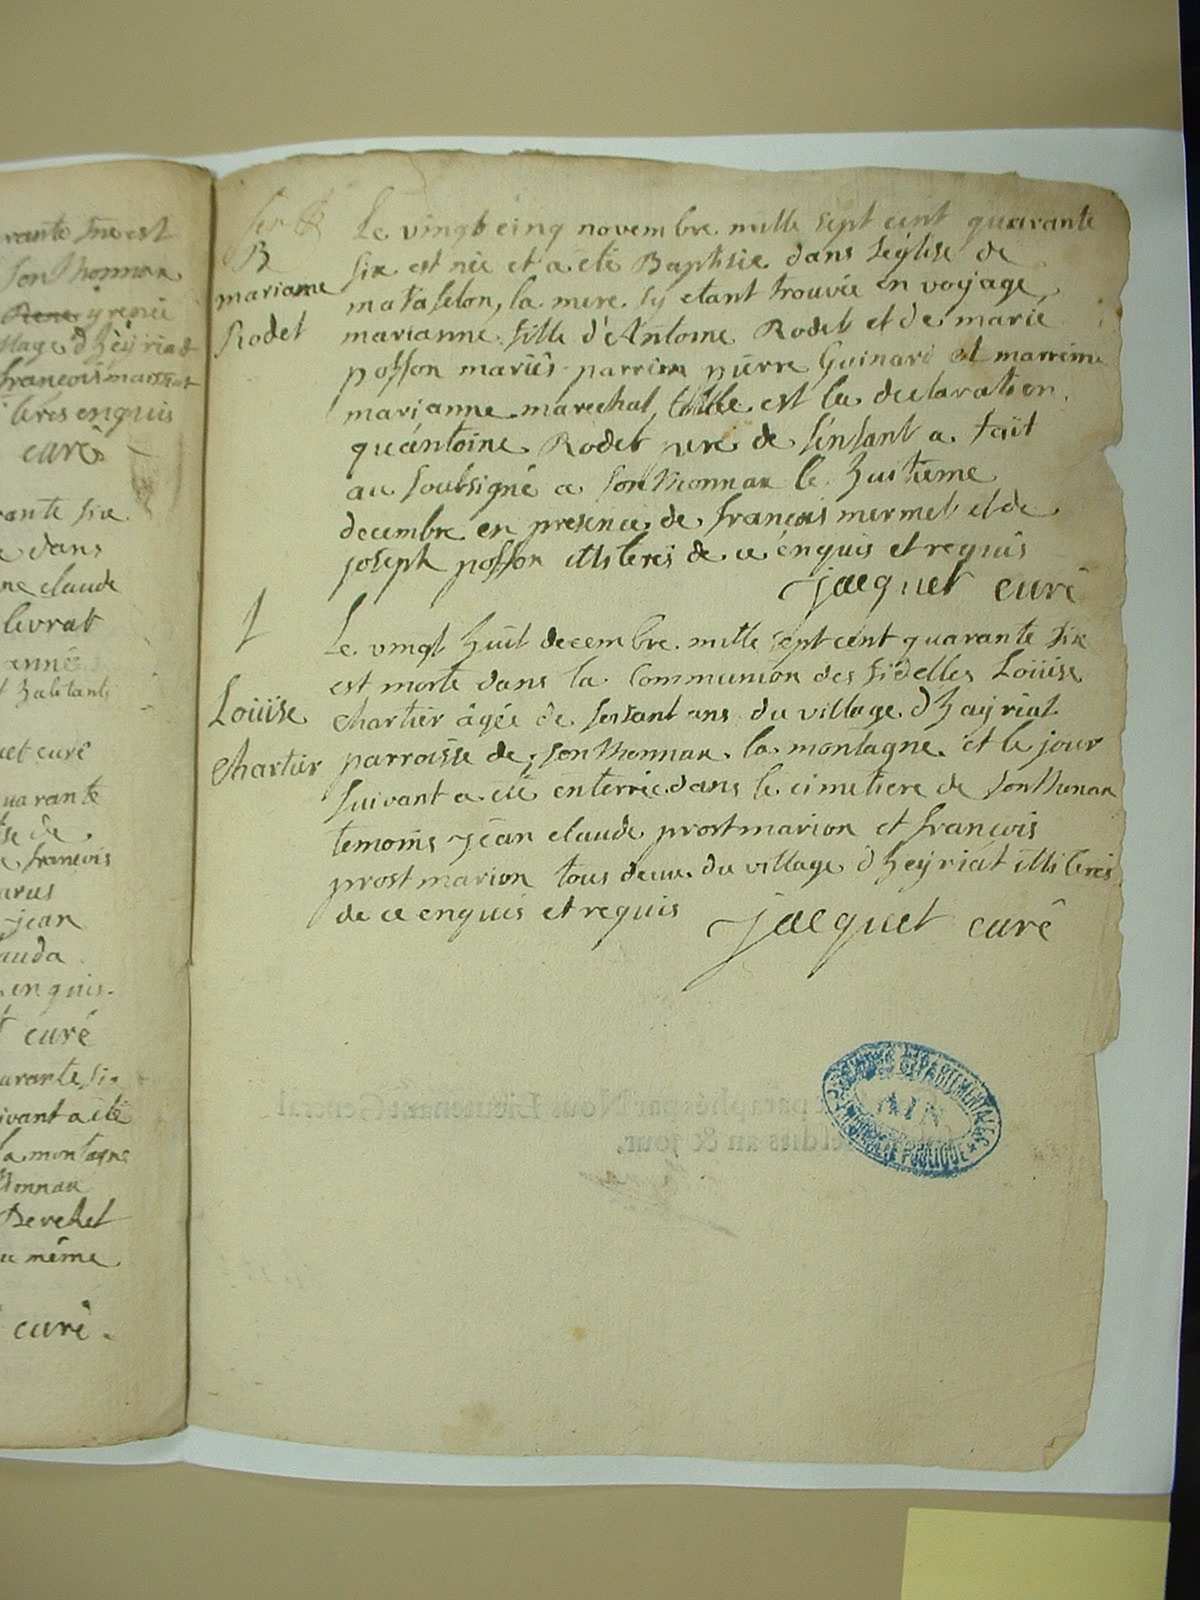 rante
sonthonnax
y renée
françois
iteres enquis
curé
rante six
dans
ne claude
livrat
année
habitants
uet curé
uarante
se de
françois
jean
auda
enquis
curé
arante six
ivant a été
la montagne
thonnax
Berchet
u même
curé
B
marianne
Rodet
Le vingt cinq novembre mille sept cent quarante
six est née et a été Baptisée dans l'église de
matafelon, la mere sy etant trouvée en voyage,
marianne fille d'Antoine Rodet et de marie
poffon mariés parrein pierre Guinard et marreine
marianne marechal, telle est la declaration
qu'antoine Rodet pere de l'enfant a fait
au soubsigné a sonthonnax le huitieme
decembre en presence de françois mermet et de
joseph poffon illiteres de ce enquis et requis
jacquet curé
Louïse
Chartier
Le vingt huit decembre mille sept cent quarante six
est morte dans la Communion des fidelles Louïse
Chartier âgée de soisant ans du village d'heyriat
parroisse de sonthonnax la montagne et le jour
suivant a été enterrée dans le cimetiere de sonthonax
temoins jean claude prost marion et françois
prost marion tous deux du village d'heyriat illiteres
de ce enquis et requis
jacquet curé
paraphés par Nous Lieutenant General
esdits an & jour.
DEPARTEMENTALES
AIN